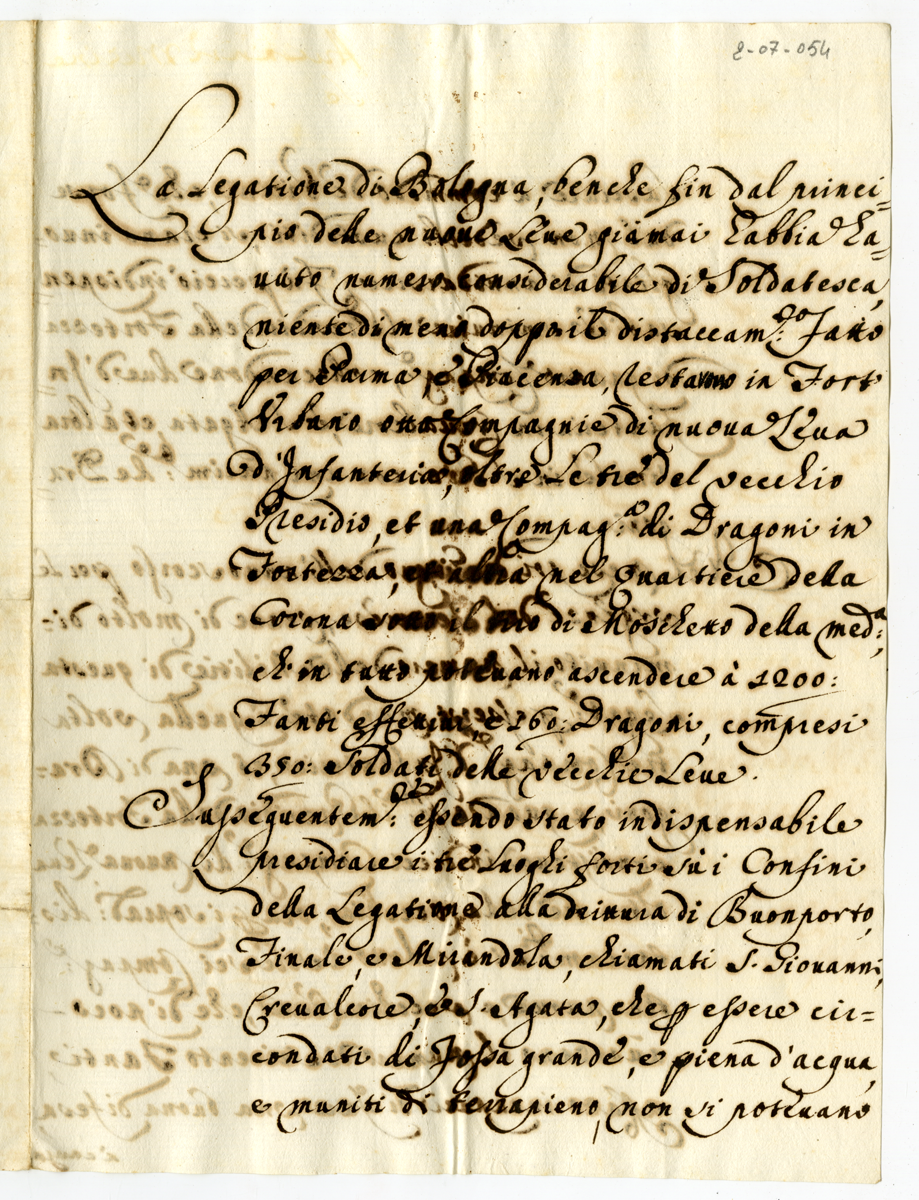 2-07-054
La Legatione di Bologna, benche fin dal princi=
pio delle nuove Leue giamai habbia ha=
uuto numero considerabile di Soldatesca,
nientedimeno doppo il distaccam.to fatto
per Parma, e Piacenza, restauano in Fort
Urbano otto Compagnie di nuoua Leua
d'Infanteria, oltre le tre del vecchio
Presidio, et una Compag.a di Dragoni in
Fortezza, et altra nel quartiere della
Corona sotto il tiro di Moschetto della med.a,
ch'in tutto poteuano ascendere à 1200:
Fanti effettiui, e 160: Dragoni, compresi
350: Soldati delle vecchie Leue.
Susseguentem.te essendo stato indispensabile
presidiare i tre Luoghi forti sù i Confini
della Legatione alla drittura di Buonporto,
Finale, e Mirandola, chiamati S. Giovanni,
Crevalcore, e S. Agata, che p essere cir=
condati di fossa grande, e piena d'acqua,
e muniti di terrapieno, non si poteuano